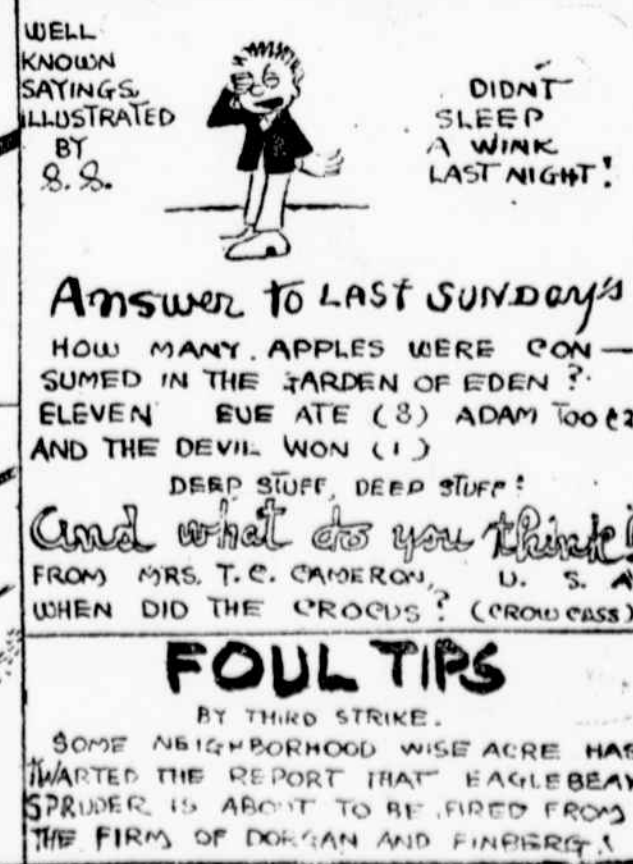 WELL
KNOWN
SAYINGS
ILLUSTRATED
BY
S. S.
DIDN'T
SLEEP
A WINK
LAST NIGHT!
Answer to LAST SUNDay's
HOW MANY APPLES WERE CON—
SUMED IN THE GARDEN OF EDEN?
ELEVEN EVE ATE (8) ADAM Too (2
AND THE DEVIL WON (1)
DEEP STUFF, DEEP STUFF!
And what do you think
FROM MRS. T. C. CAMERON, U. S. A
WHEN DID THE CROCUS? (CROW CASS)
FOUL TIPS
BY THIRD STRIKE.
SOME NEIGHBORHOOD WISE ACRE HAS
THE REPORT THAT EAGLEBEAK
SPRUDER IS ABOUT TO BE FIRED FROM
THE FIRM OF DORGAN AND FINBERG!